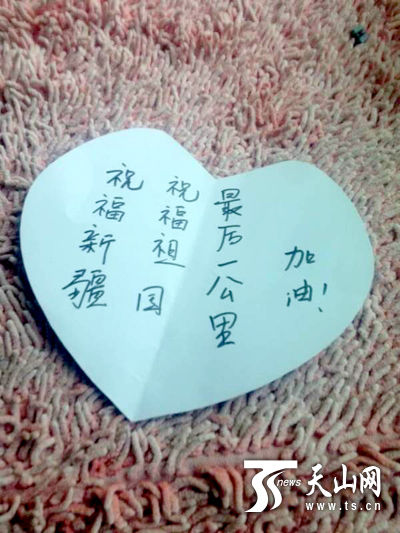 祝福新疆
祝福祖国
最后一公里
加油！
TS news 天山网
www.ts.cn